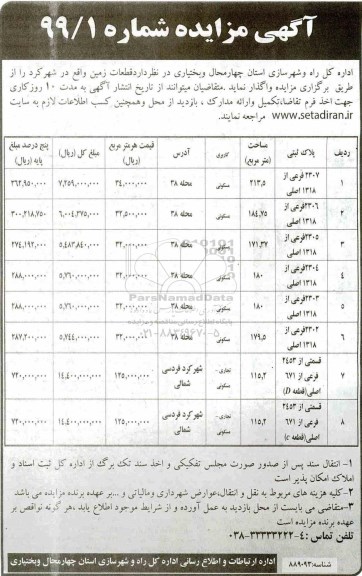 آگهی مزایده شماره ۹۹/۱
اداره کل راه وشهرسازی استان چهارمحال وبختیاری در نظرداردقطعات زمین واقع در شهرکرد را از
طریق برگزاری مزایده واگذار نماید .متقاضیان میتوانند از تاریخ انتشار آگهی به مدت ۱۰ روزکاری
جهت اخذ فرم تقاضا،تکمیل وارائه مدارک ، بازدید از محل وهمچنین کسب اطلاعات لازم به سایت
www.setadiran.ir مراجعه نمایند.
ردیف پلاک ثبتی مساحت (متر مربع) کاربری آدرس قیمت هرمتر مربع (ریال) مبلغ کل (ریال) پنج درصد مبلغ پایه (ریال)
۱ ۲۳۰۷ فرعی از ۱۳۱۸ اصلی ۲۱۳٫۵ مسکونی محله ۳۸ ۳۴,۰۰۰,۰۰۰ ۷,۲۵۹,۰۰۰,۰۰۰ ۳۶۲,۹۵۰,۰۰۰
۲ ۲۳۰۶فرعی از ۱۳۱۸ اصلی ۱۸۴٫۷۵ مسکونی محله ۳۸ ۳۲,۵۰۰,۰۰۰ ۶,۰۰۴,۳۷۵,۰۰۰ ۳۰۰,۲۱۸,۷۵۰
۳ ۲۳۰۵فرعی از ۱۳۱۸ اصلی ۱۷۱٫۳۷ مسکونی محله ۳۸ ۳۲,۰۰۰,۰۰۰ ۵,۴۸۳,۸۴۰,۰۰۰ ۲۷۴,۱۹۲,۰۰۰
۴ ۲۳۰۴فرعی از ۱۳۱۸ اصلی ۱۸۰ مسکونی محله ۳۸ ۳۲,۰۰۰,۰۰۰ ۵,۷۶۰,۰۰۰,۰۰۰ ۲۸۸,۰۰۰,۰۰۰
۵ ۲۳۰۳فرعی از ۱۳۱۸ اصلی ۱۸۰ مسکونی محله ۳۸ ۳۲,۰۰۰,۰۰۰ ۵,۷۶۰,۰۰۰,۰۰۰ ۲۸۸,۰۰۰,۰۰۰
۶ ۲۳۰۲فرعی از ۱۳۱۸ اصلی ۱۷۹٫۵ مسکونی محله ۳۸ ۳۲,۰۰۰,۰۰۰ ۵,۷۴۴,۰۰۰,۰۰۰ ۲۸۷,۲۰۰,۰۰۰
۷ قسمتی از ۲۴۵۳ فرعی از ۶۷۱ اصلی(قطعه D) ۱۱۵٫۲ تجاری - مسکونی شهرکرد فردسی شمالی ۱۲۵,۰۰۰,۰۰۰ ۱۴,۴۰۰,۰۰۰,۰۰۰ ۷۲۰,۰۰۰,۰۰۰
۸ قسمتی از ۲۴۵۳ فرعی از ۶۷۱ اصلی(قطعه c) ۱۱۵٫۲ تجاری - مسکونی شهرکرد فردسی شمالی ۱۲۵,۰۰۰,۰۰۰ ۱۴,۴۰۰,۰۰۰,۰۰۰ ۷۲۰,۰۰۰,۰۰۰
ParsNamadData
۰۲۱-۸۸۳۴۹۶۷۰-۵
۱- انتقال سند پس از صدور صورت مجلس تفکیکی و اخذ سند تک برگ از اداره کل ثبت اسناد و
املاک امکان پذیر است
۲-کلیه هزینه های مربوط به نقل و انتقال،عوارض شهرداری ومالیاتی و ...بر عهده برنده مزایده می باشد
۳-متقاضی می بایست از محل بازدید به عمل آورده و از شرایط موجود اطلاع یابد ،هر گونه نواقص بر
عهده برنده مزایده است
تلفن تماس :۴-۰۳۸-۳۳۳۳۳۲۲۲
اداره ارتباطات و اطلاع رسانی اداره کل راه و شهرسازی استان چهارمحال وبختیاری
شناسه:۸۸۹۰۹۳